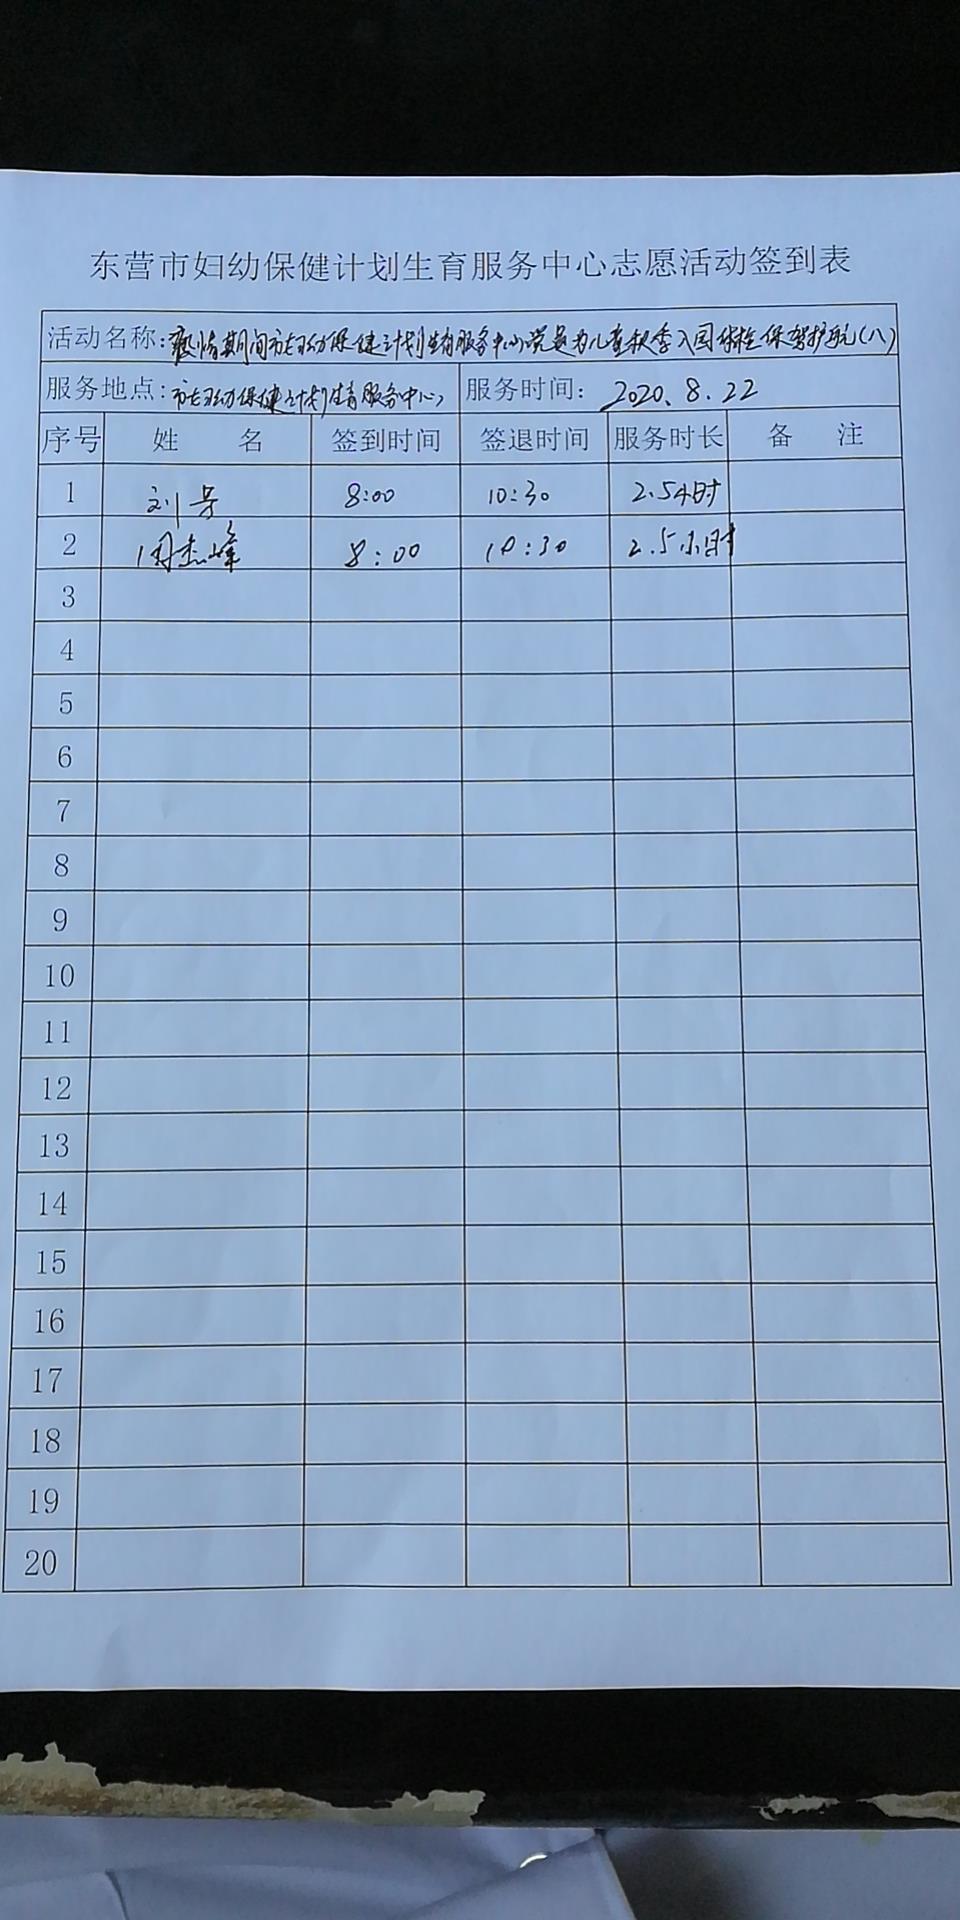 东营市妇幼保健计划生育服务中心志愿活动签到表
活动名称:疫情期间市妇幼保健计划生育服务中心党员为儿童秋季入园体检保驾护航(八)
服务地点:市妇幼保健计划生育服务中心 服务时间: 2020.8.22
序号 姓 名 签到时间 签退时间 服务时长 备 注
1 刘芳 8:00 10:30 2.5小时
2 周杰峰 8:00 10:30 2.5小时
3
4
5
6
7
8
9
10
11
12
13
14
15
16
17
18
19
20